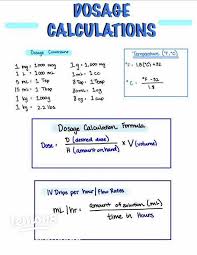 DOSAGE
CALCULATIONS
Dosage Conversions
1 mg = 1,000 mcg
1 L = 1,000 mL
5 mL = 1 Tsp
1 kg = 1,000 g
1 kg = 2.2 lbs
1 g = 1,000 mg
1 mL = 1 cc
30 mL = 1 oz
Temperature (°F, °C)
°F = 1.8(°C) + 32
°C = °F - 32
1.8
Dosage Calculation Formula
Dose = D (desired dose) × V (volume)
H (amount on hand)
IV Drips per hour / Flow Rates
mL/hr = amount of solution (mL)
time in Hours